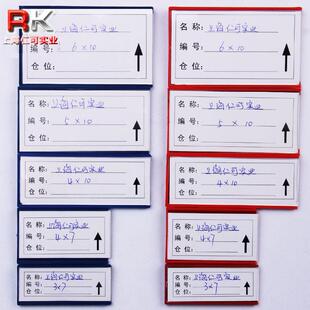 RK
上海仁可实业
名称: 上海仁可实业
编号: 6×10
仓位:
名称: 上海仁可实业
编号: 6×10
仓位:
名称: 上海仁可实业
编号: 5×10
仓位:
名称: 上海仁可实业
编号: 5×10
仓位:
名称: 上海仁可实业
编号: 4×10
仓位:
名称: 上海仁可实业
编号: 4×10
仓位:
名称: 上海仁可实业
编号: 4×7
仓位:
名称: 上海仁可实业
编号: 4×7
仓位:
名称: 上海仁可实业
编号: 3×7
仓位:
名称: 上海仁可实业
编号: 3×7
仓位: